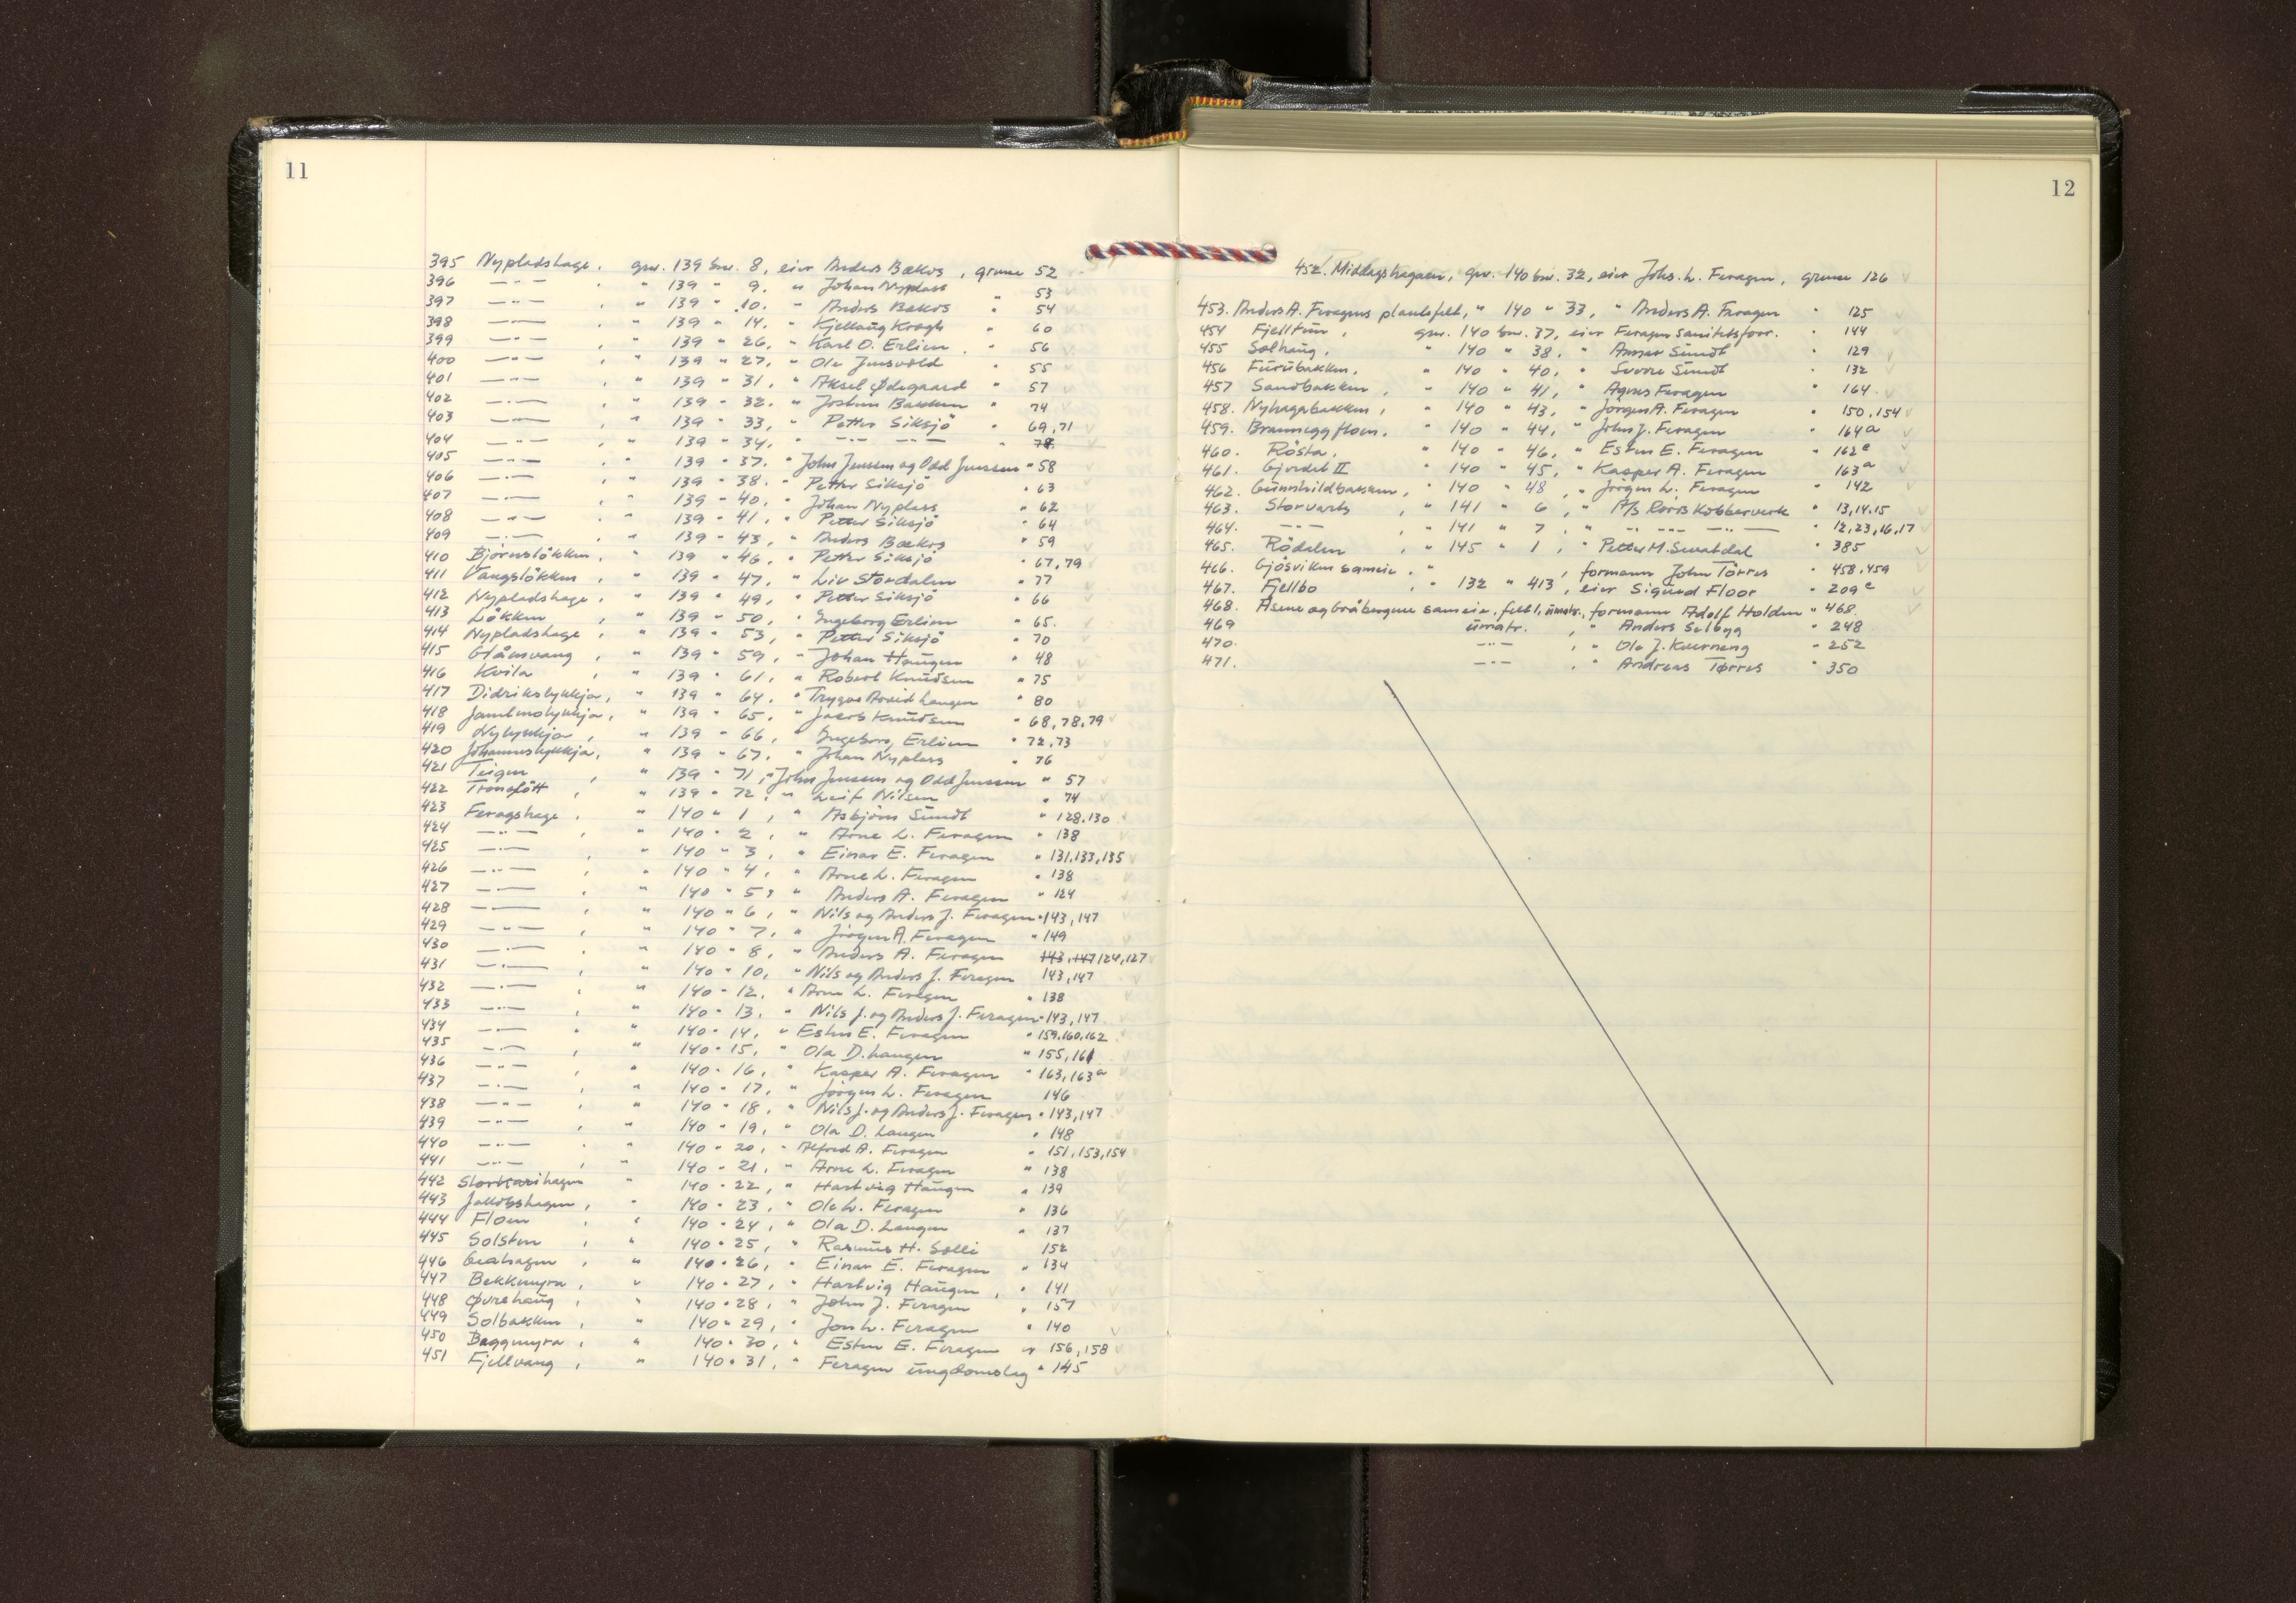 11
395 Nypladshage, gnr. 139 bnr. 8, eier Anders Bækos, grense 52
396 —"— , " 139 " 9, " Johan Nyplass " 53
397 —"— , " 139 " 10. " Anders Bækos " 54
398 —"— , " 139 " 14. " Kjellaug Krogh " 60
399 —"— , " 139 " 26, " Karl O. Erlien . " 56
400 —"— , " 139 " 27, " Ole Jensvold " 55
401 —"— , " 139 " 31, " Aksel Ødegaard " 57
402 —"— , " 139 " 32. " Jostein Bakken " 74
403 —"— , " 139 " 33, " Petter Siksjö " 69,71
404 —"— , " 139 " 34, " —"— —"— "
405 —"— , " 139 " 37. " John Jenssen og Odd Jenssen " 58
406 —"— , " 139 " 38. " Petter Siksjö " 63
407 —"— , " 139 " 40, " Johan Nyplass " 62
408 —"— , " 139 " 41, " Petter Siksjö " 64
409 —"— , " 139 " 43, " Anders Bækos " 59
410 Björnslökken, " 139 " 46, " Petter Siksjö " 67,79
411 Vangslökken , " 139 " 47, " Liv Stordalen " 77
412 Nypladshage, " 139 " 49, " Petter Siksjö " 66
413 Lökken , " 139 " 50, " Ingeborg Erlien " 65.
414 Nypladshage , " 139 " 53, " Petter Siksjö " 70
415 Glåmvang , " 139 " 59, " Johan Haugen " 48
416 Kvila , " 139 " 61, " Robert Knudsen " 75
417 Didrikslykkja, " 139 " 64, " Trygve Arvid Langen " 80
418 Jamtmolykkja, " 139 " 65, " Jacob Knudsen " 68,78,79
419 Nylykkja , " 139 " 66, " Ingeborg Erlien " 72,73
420 Johanneslykkja, " 139 " 67, " Johan Nyplass " 76
421 Teigen , " 139 " 71, " John Jenssen og Odd Jenssen " 57
422 , " 139 " 72, " Leif Nilsen " 74
423 Feragshage , " 140 " 1 , " Asbjörn Sundt " 128,130
424 —"— , " 140 " 2 , " Arne L. Feragen " 138
425 —"— , " 140 " 3, " Einar E. Feragen " 131,133,135
426 —"— , " 140 " 4, " Arne L. Feragen " 138
427 —"— , " 140 " 5, " Anders A. Feragen " 124
428 —"— , " 140 " 6, " Nils og Anders J. Feragen " 143,147
429 —"— , " 140 " 7, " Jörgen A. Feragen " 149
430 —"— , " 140 " 8, " Anders A. Feragen 143,147 124,127
431 —"— , " 140 " 10, " Nils og Anders J. Feragen 143,147
432 —"— , " 140 " 12. " Arne L. Feragen " 138
433 —"— , " 140 " 13. " Nils J. og Anders J. Feragen " 143,147
434 —"— , " 140 " 14, " Esten E. Feragen " 159,160,162
435 —"— , " 140 " 15, " Ola D. Langen " 155,161
436 —"— , " 140 " 16, " Kasper A. Feragen " 163,163a
437 —"— , " 140 " 17, " Jörgen L. Feragen 146
438 —"— , " 140 " 18, " Nils J. og Anders J. Feragen " 143,147
439 —"— , " 140 " 19, " Ola D. Langen " 148
440 —"— , " 140 " 20, " Alfred A. Feragen " 151,153,154
441 —"— , " 140 " 21, " Arne L. Feragen " 138
442 Storkarihagen " 140 " 22, " Hartvig Haugen " 139
443 Jakobshagen, " 140 " 23, " Ole L. Feragen " 136
444 Floen , " 140 " 24, " Ola D. Langen " 137
445 Solsten , " 140 " 25, " Rasmus H. Solli 152
446 , " 140 " 26, " Einar E. Feragen " 134
447 Bekkmyra, " 140 " 27, " Hartvig Haugen , " 141
448 Øvrehaug , " 140 " 28, " John J. Feragen " 157
449 Solbakken , " 140 " 29, " Jon L. Feragen " 140
450 Baggmyra , " 140 " 30, " Esten E. Feragen " 156,158
451 Fjellvang , " 140 " 31, " Feragen ungdomslag " 145
12
452. Middagshagaen, gnr. 140 bnr. 32, eier Johs. L. Feragen, grense 126
453. Anders A. Feragens plantefelt, " 140 " 33, " Anders A. Feragen " 125
454 Fjelltun , gnr. 140 bnr. 37, eier Feragen Sanitetsforr. " 144
455 Solhaug, " 140 " 38, " Annar Sundt " 129
456 Furubakken, " 140 " 40, " Sverre Sundt " 132
457 Sandbakken , " 140 " 41, " Agnes Feragen " 164.
458. Nyhagabakken, " 140 " 43, " Jörgen A. Feragen " 150,154
459. Brannegg floen. " 140 " 44, " John J. Feragen " 164a
460. Rösta, " 140 " 46, " Esten E. Feragen " 162c
461. Gjerdet II " 140 " 45, " Kasper A. Feragen 163a
462. Gunnhildbakken, " 140 " 48 , " Jörgen L. Feragen " 142
463. Storvarts , " 141 " 6 , " A/S Röros Kobberverk " 13,14,15
464. —"— , " 141 " 7 , " —"— —"— —"— " 12,23,16,17
465. Rödalen , " 145 " 1 , " Petter M. Svartdal " 385
466. Gjösviken sameie . " , formann John Törres " 458,459
467. Fjellbo , " 132 " 413, eier Sigurd Floor " 209c
468. Åsene og Gråbergene sameie, felt 1, umatr., formann Adolf Holden " 468.
469 umatr. , " Anders Selbyg " 248
470. —"— , " Ole J. Kverneng " 252
471. —"— , " Andreas Tørres " 350